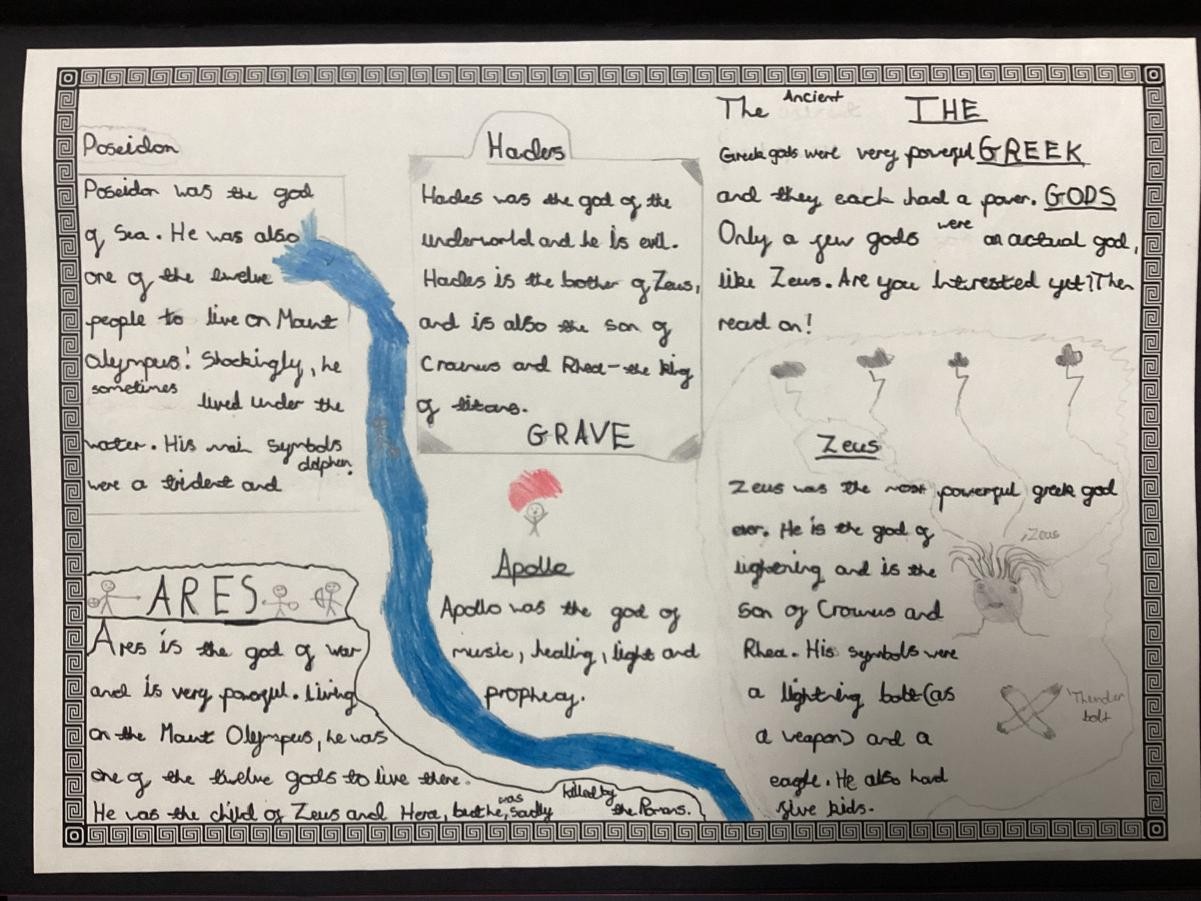 THE
GREEK
GODS
The Ancient
Greek gods were very poweful
and they each had a power.
Only a few gods were an actual god,
like Zeus. Are you Intrested yet? Then
read on!
Poseidon
Poseidon was the god
of Sea. He was also
one of the twelve
people to live on Mount
Olympus! Shockingly, he
sometimes lived under the
water. His main symbols
were a trident and dolphin.
Hades
Hades was the god of the
underworld and he is evil.
Hades is the bother of Zeus,
and is also the son of
Crounus and Rhea-the king
of titans.
GRAVE
Apollo
Apollo was the god of
music, healing, light and
prophecy.
ARES
Ares is the god of war
and is very powerful. Living
on the Mount Olympus, he was
one of the twelve gods to live there.
He was the child of Zeus and Hera, but he, was sadly killed by the Romans.
Zeus
Zeus was the most powerful greek god
ever. He is the god of
lightning and is the
son of Crounus and
Rhea. His symbols were
a lightning bolt (as
a weapon) and a
eagle. He also had
five kids.
Zeus
Thunder
bolt